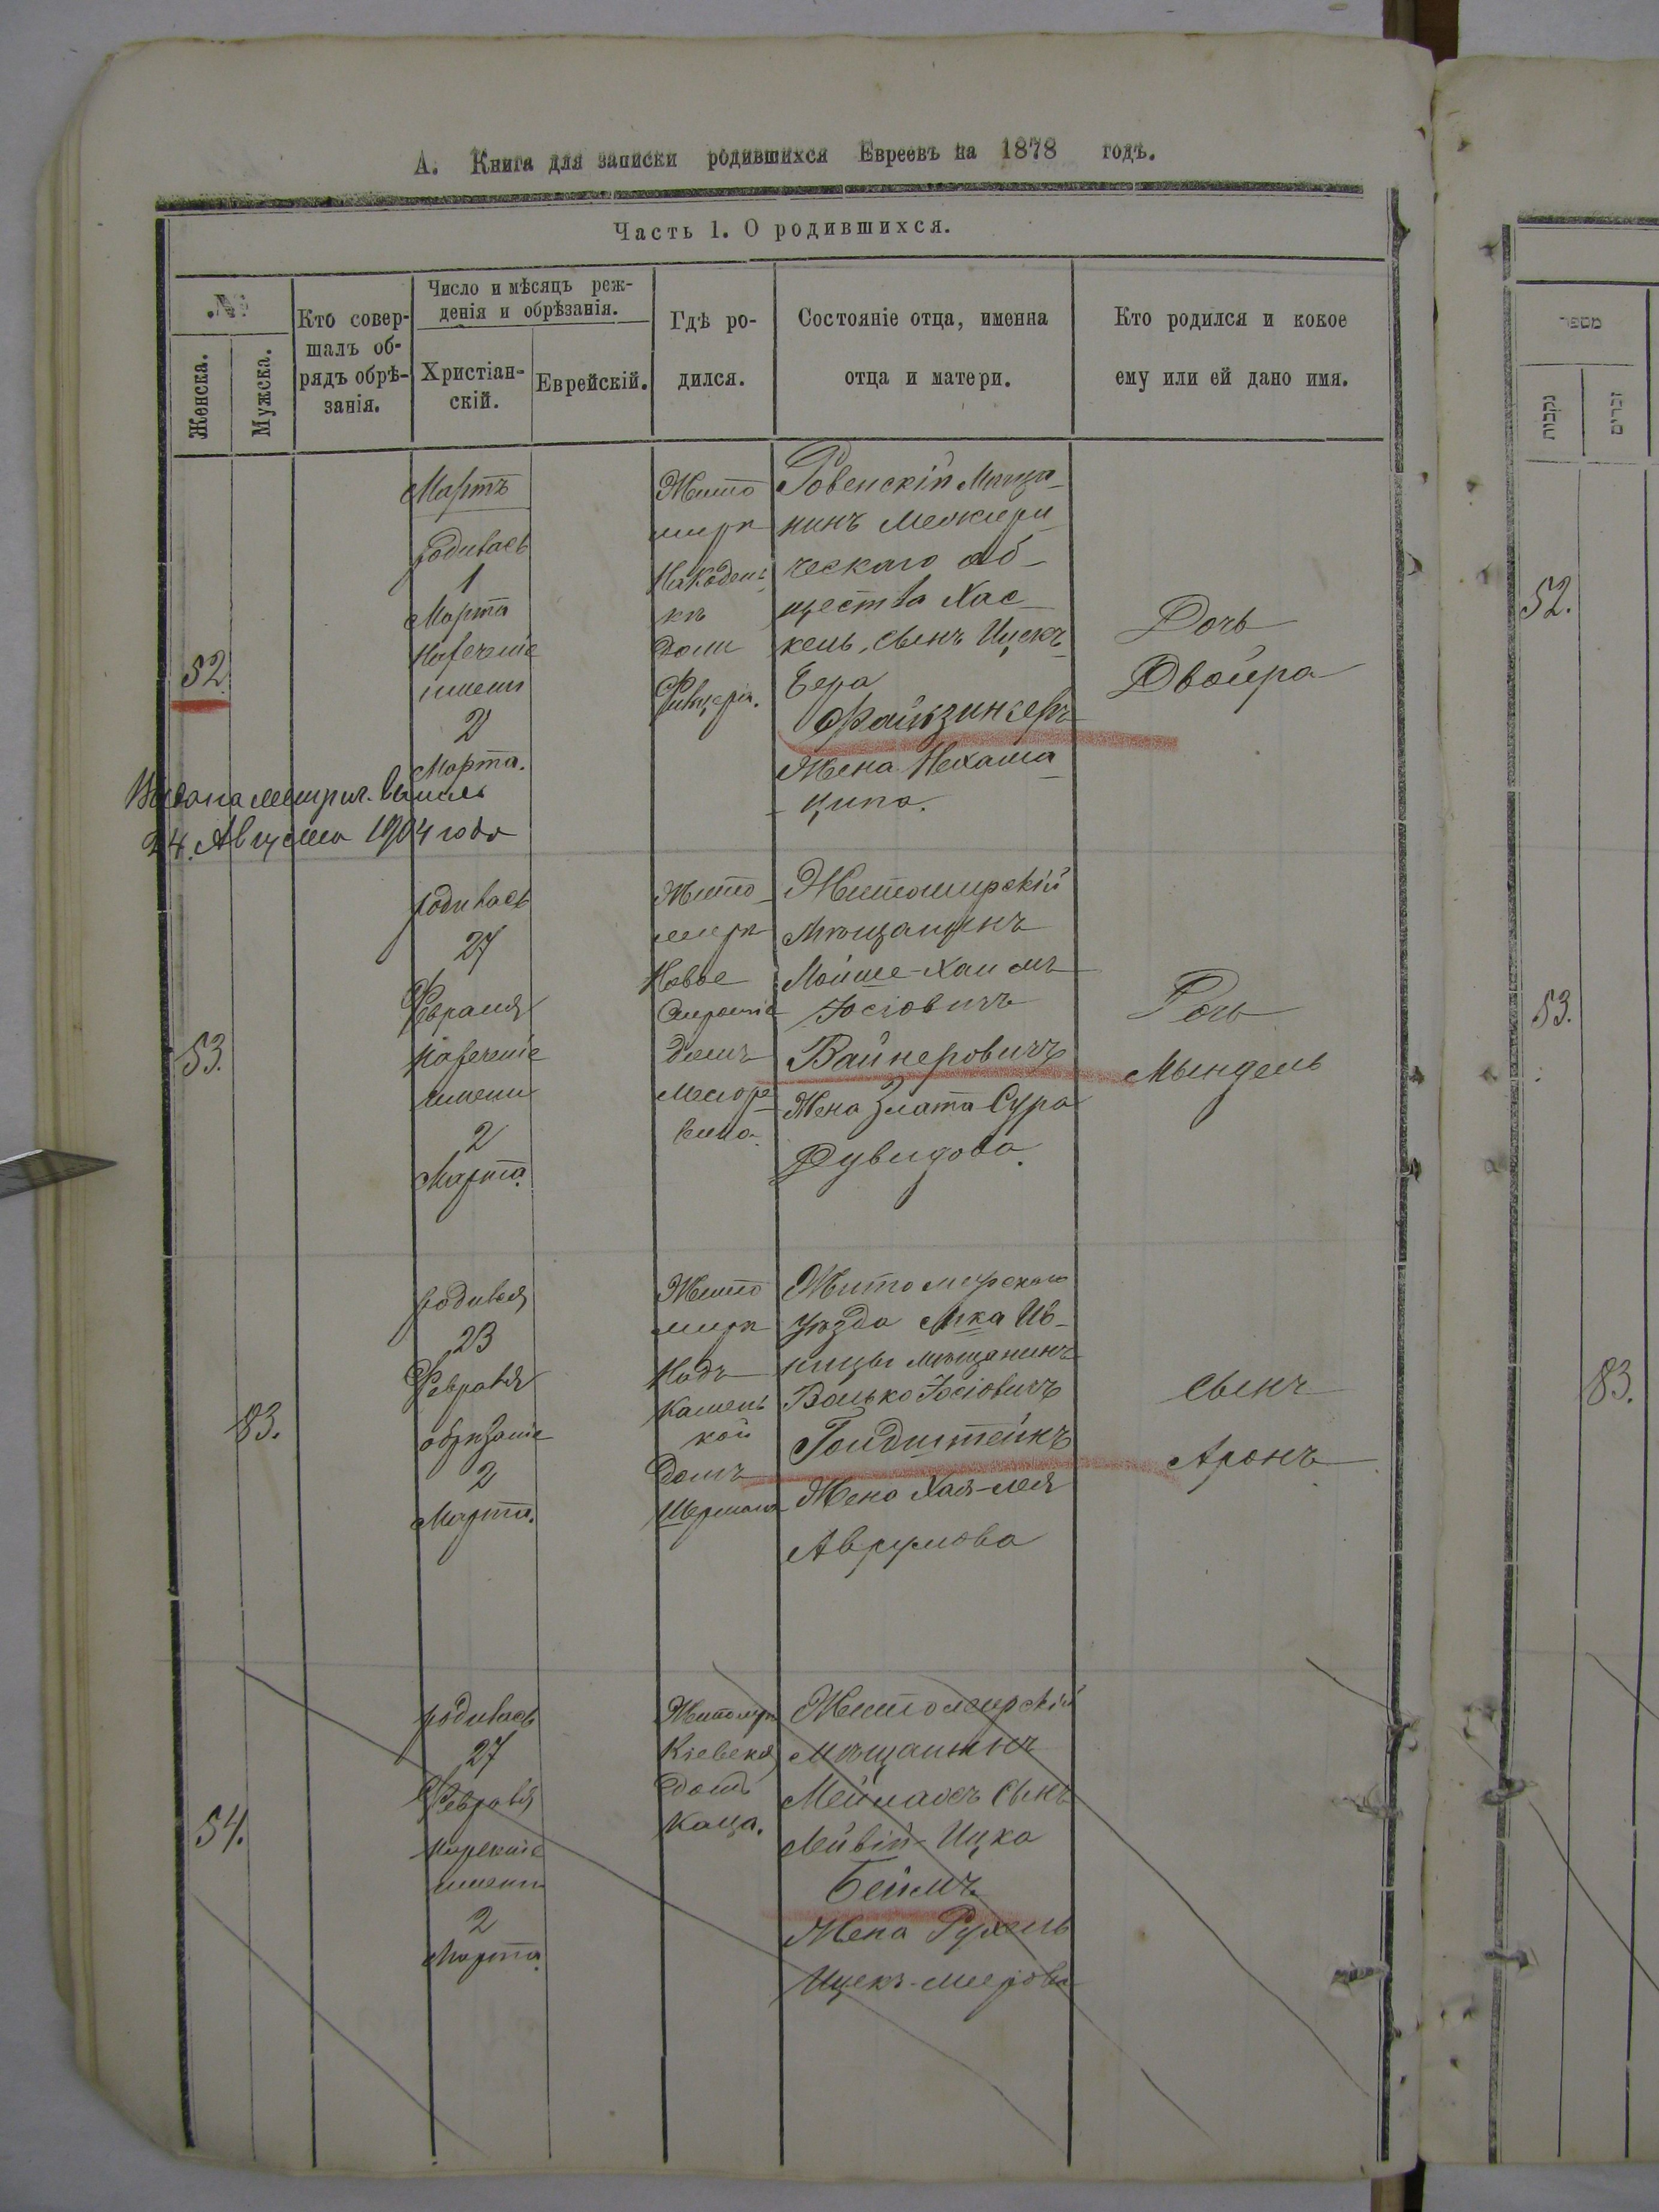 А. Книга для записки родившихся Евреевъ на 1878 годъ.
Часть 1. О родившихся.
№
Женска.
Мужска.
Кто совер-
шалъ об-
рядъ обрѣ-
занія.
Число и мѣсяцъ реж-
денія и обрѣзанія.
Христіан-
скій.
Еврейскій.
Гдѣ ро-
дился.
Состояніе отца, именна
отца и матери.
Кто родился и кокое
ему или ей дано имя.
52
Мартъ
родилась
1
Марта
Нареченіе
имени
2
Марта.
Жито
миръ
домъ
Ровенскій Мѣща-
нинъ Межири
ческаго об-
щества Хас-
кель, сынъ Ицекъ-
Бера
Файнзингеръ
Жена Нехама-
ципа.
Дочь
Двойра
Выдана метрич. выпись
24 Августа 1904 года
53.
родилась
27
Февраля
Нареченіе
имени
2
Марта.
Жито-
миръ
Новое
домъ
Житомирскій
Мѣщанинъ
Мойше-Хаимъ
Іосіовичъ
Вайнеровичъ
Жена Злата-Сура
Дувидова.
Дочь
Мындель
83.
родился
23
Февраля
обрѣзаніе
2
Марта.
Жито
миръ
Надъ
Камень
кой
домъ
Шермана
Житомирскаго
уѣзда Мка Ив-
ницы мѣщанинъ
Волько Іосіовичъ
Голдштейнъ
Жена Хая-лея
Аврумова
сынъ
Аронъ
54.
родилась
27
Февраля
Нареченіе
имени
2
Марта.
Житомиръ
Кіевская
домъ
Каца.
Житомирскій
мѣщанинъ
Мейлахъ сынъ
Лейвій-Ицка
Беймъ
Жена Рухель
Ицекъ-меерова
מספר
נקבות
זכרים
52.
53.
83.